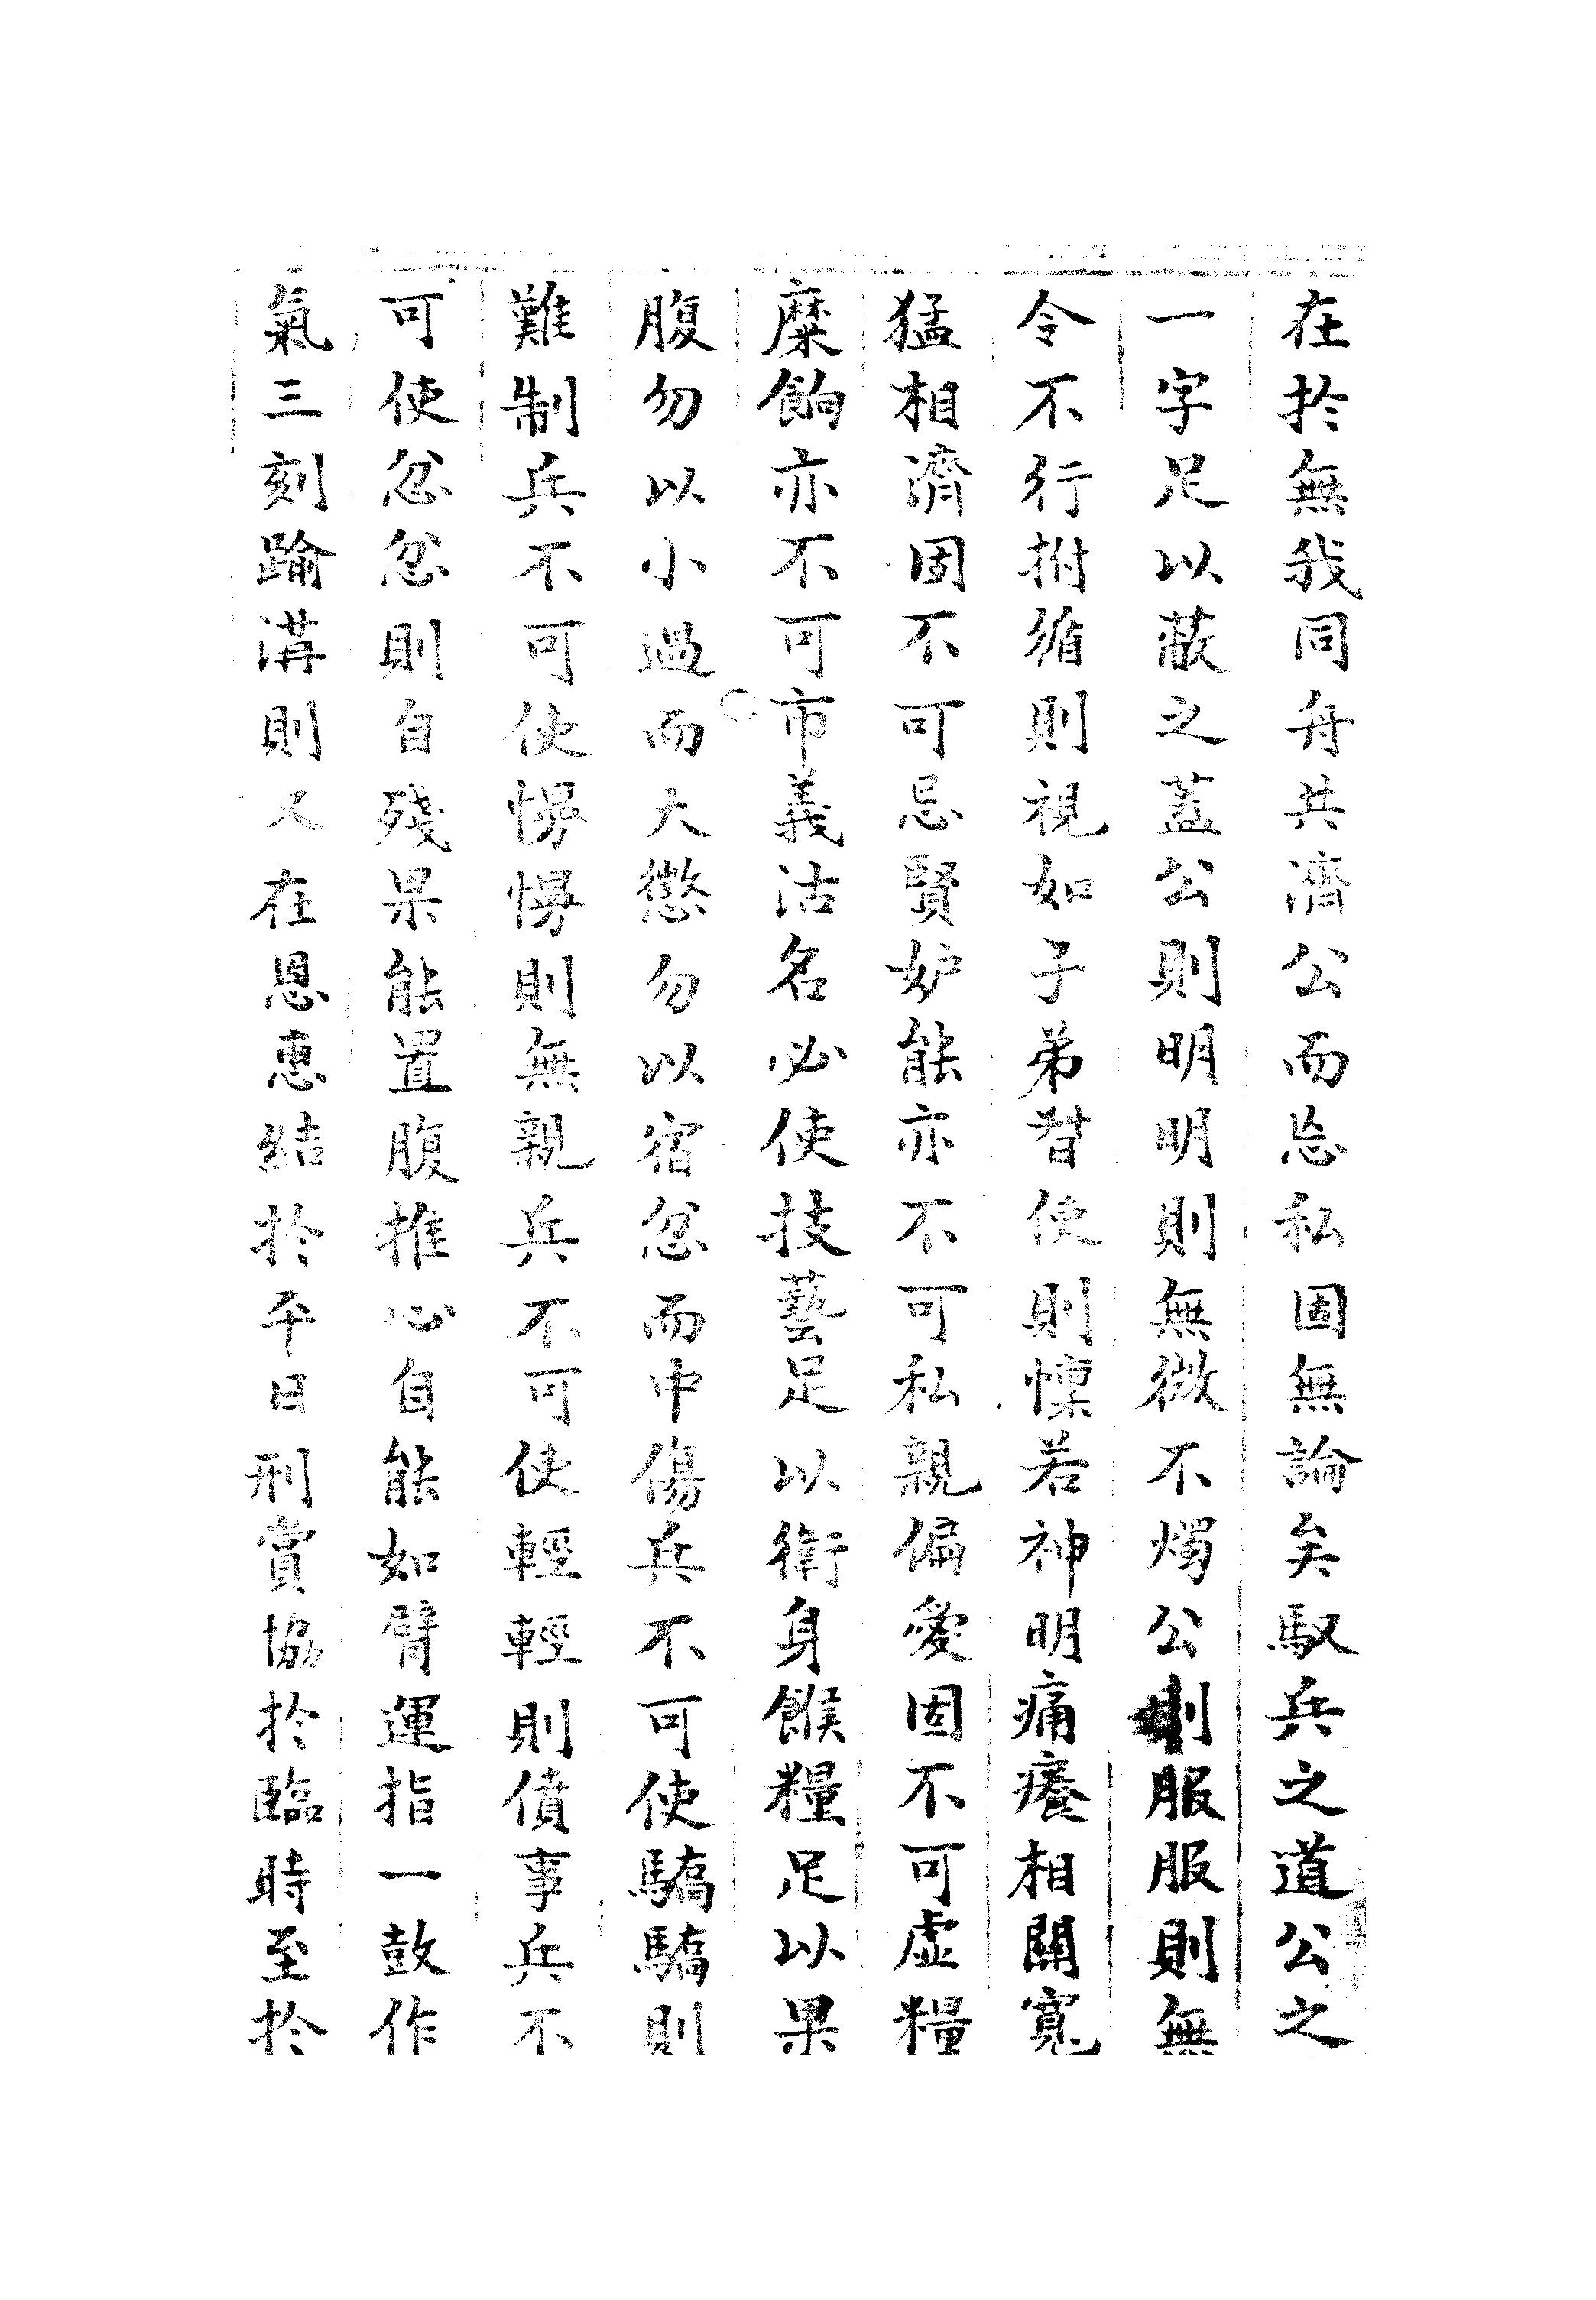 在扵無我同舟共濟公而忘私固無論矣馭兵之道公之
一字足以蔽之蓋公則明明則無微不燭公則服服則無
令不行拊循則視如子弟督使則懍若神明痛癢相關寬
猛相濟固不可忌賢妒能亦不可私親偏愛固不可虛糧
糜餉亦不可市義沽名必使技藝足以衛身餱糧足以果
腹勿以小過而大懲勿以宿忿而中傷兵不可使驕驕則
難制兵不可使則無親兵不可使輕輕則僨事兵不
可使忿忿則自殘果能置腹推心自能如臂運指一鼓作
氣三刻踰溝則又在恩惠結扵平日刑賞協扵臨時至扵